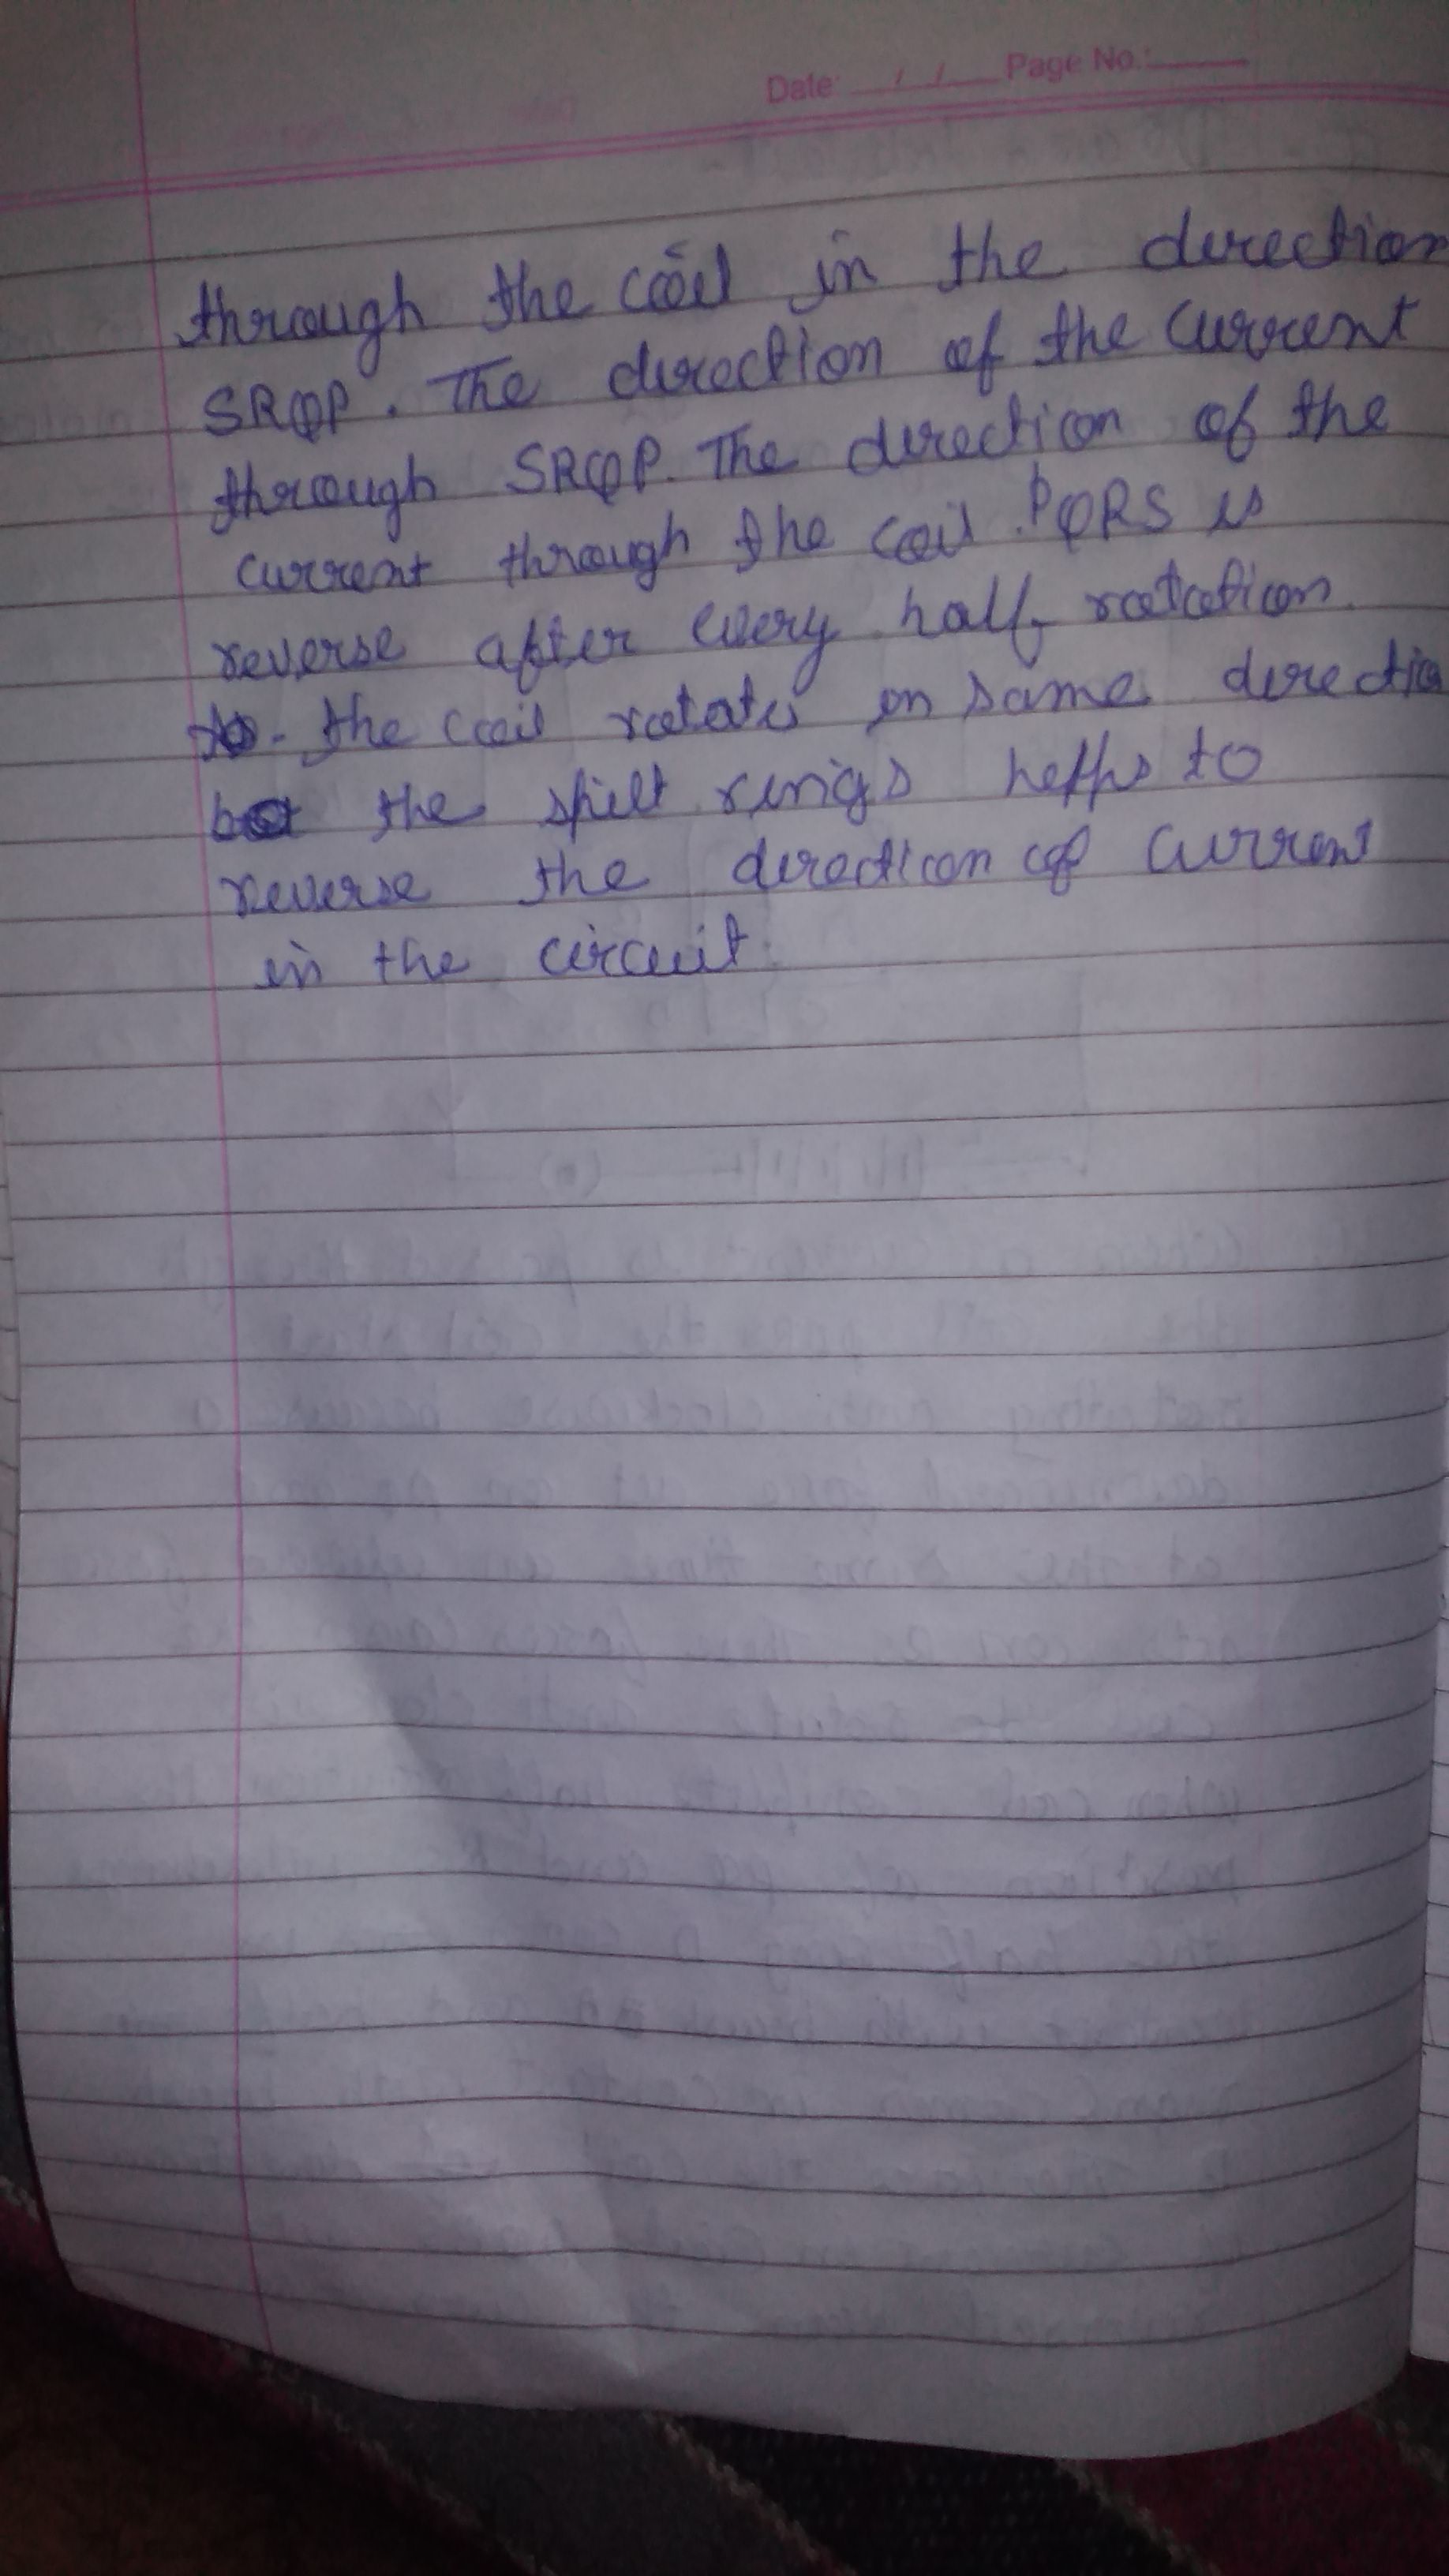 Date / / Page No.:
through the coil in the direction
SRQP. The direction of the current
through SRQP. The direction of the
current through the coil PQRS is
reverse after every half rotation.
the coil rotates in same directio
the spilt rings helps to
reverse the direction of current
in the circuit.